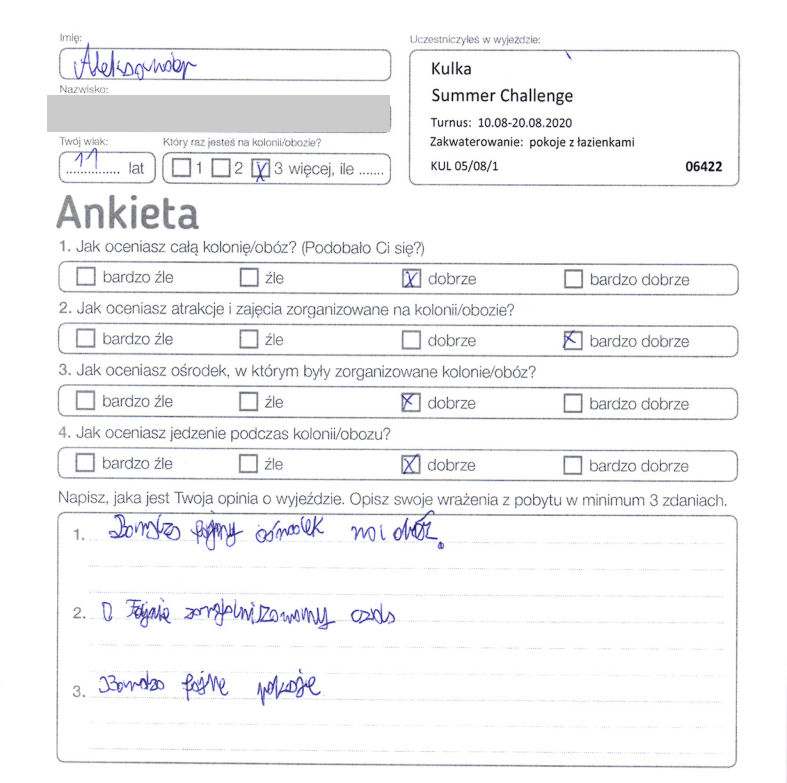 Imię:
Aleksander
Uczestniczyłeś w wyjeździe:
Kulka
Summer Challenge
Turnus: 10.08-20.08.2020
Zakwaterowanie: pokoje z łazienkami
KUL 05/08/1 06422
Nazwisko:
Twój wiek:
11 lat
Który raz jesteś na kolonii/obozie?
1 2 X 3 więcej, ile .......
Ankieta
1. Jak oceniasz całą kolonię/obóz? (Podobało Ci się?)
bardzo źle źle X dobrze bardzo dobrze
2. Jak oceniasz atrakcje i zajęcia zorganizowane na kolonii/obozie?
bardzo źle źle dobrze X bardzo dobrze
3. Jak oceniasz ośrodek, w którym były zorganizowane kolonie/obóz?
bardzo źle źle X dobrze bardzo dobrze
4. Jak oceniasz jedzenie podczas kolonii/obozu?
bardzo źle źle X dobrze bardzo dobrze
Napisz, jaka jest Twoja opinia o wyjeździe. Opisz swoje wrażenia z pobytu w minimum 3 zdaniach.
1. Bardzo fajny ośrodek no i obóz.
2. Fajnie zorganizowany czas
3. Bardzo fajne pokoje